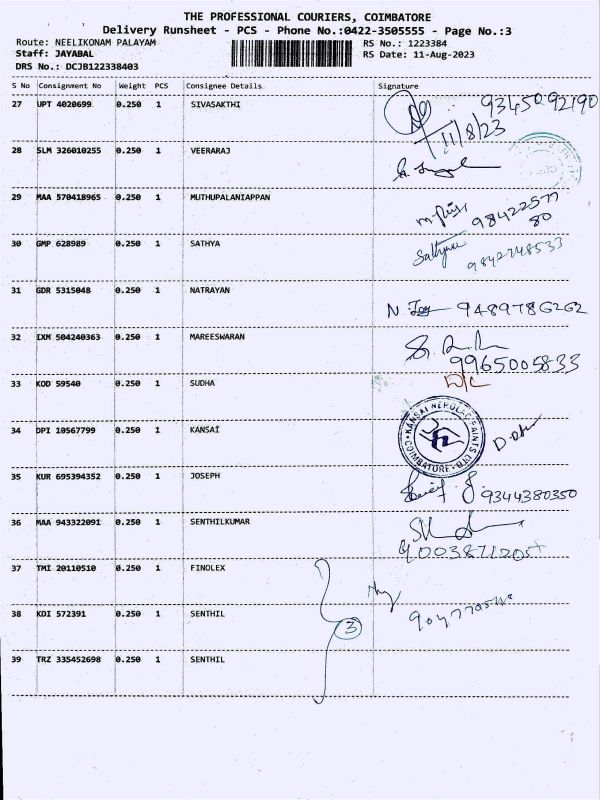 THE PROFESSIONAL COURIERS, COIMBATORE
Delivery Runsheet - PCS - Phone No.:0422-3505555 - Page No.:3
Route: NEELIKONAM PALAYAM RS No.: 1223384
Staff: JAYABAL RS Date: 11-Aug-2023
DRS No.: DCJB122338403
S No Consignment No Weight PCS Consignee Details Signature
27 UPT 4020699 0.250 1 SIVASAKTHI 9345092190
11/8/23
28 SLM 326010255 0.250 1 VEERARAJ
29 MAA 570418965 0.250 1 MUTHUPALANIAPPAN 98422577
80
30 GMP 628989 0.250 1 SATHYA Sathya 9842748533
31 GDR 5315048 0.250 1 NATRAYAN N 9489786262
32 IXM 504240363 0.250 1 MAREESWARAN
9965005833
33 KOD 59540 0.250 1 SUDHA D/L
34 DPI 10567799 0.250 1 KANSAI KANSAI NEROLAC PAINTS LTD COIMBATORE
35 KUR 695394352 0.250 1 JOSEPH 9344380350
36 MAA 943322091 0.250 1 SENTHILKUMAR
37 TMI 20110510 0.250 1 FINOLEX
38 KDI 572391 0.250 1 SENTHIL 3
39 TRZ 335452698 0.250 1 SENTHIL